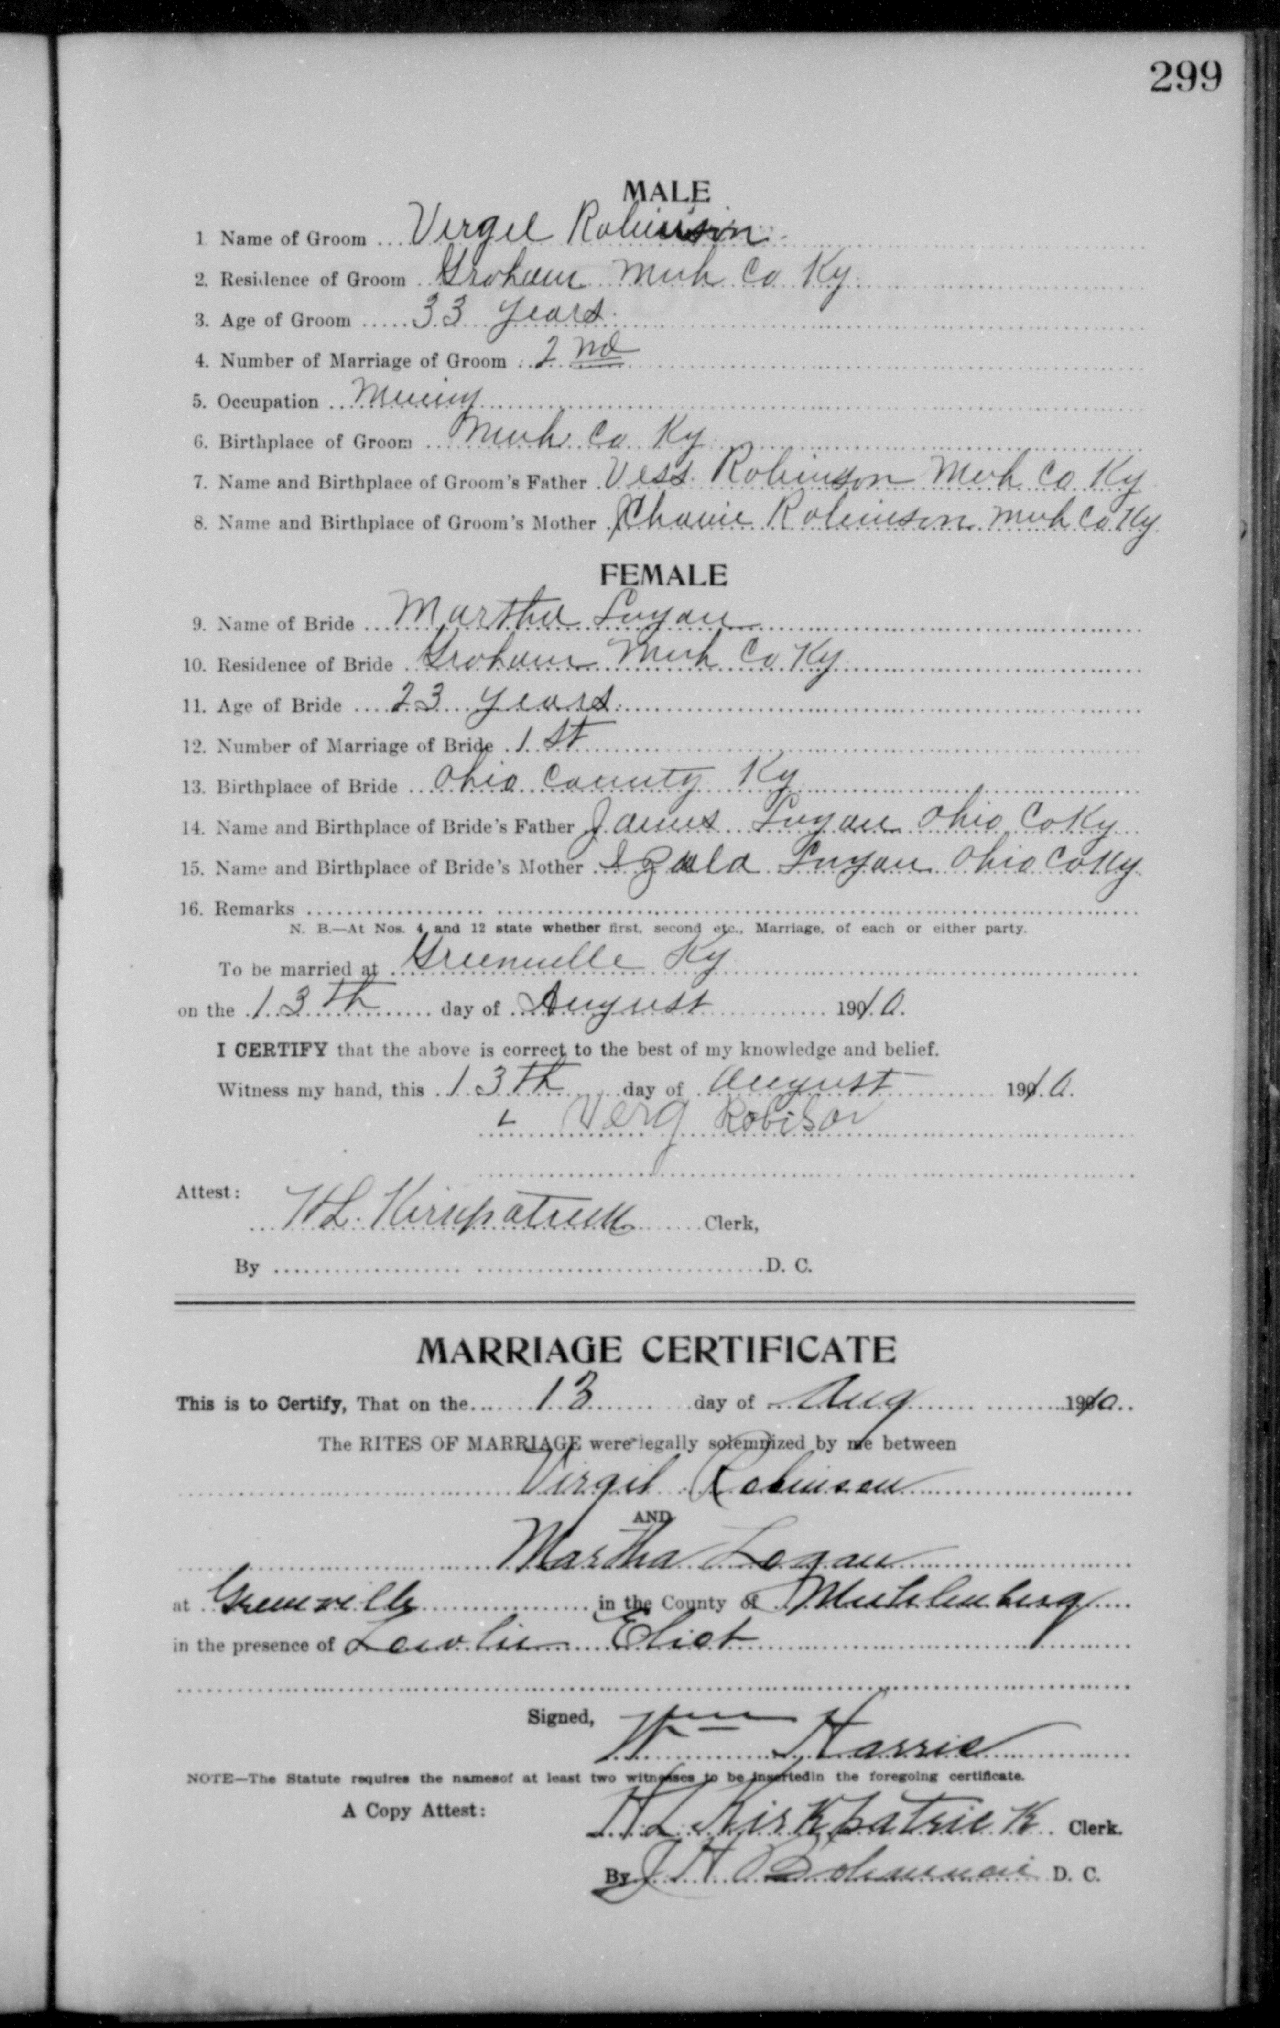 299
MALE
1 Name of Groom Virgil Robinson
2. Residence of Groom Graham Muh Co Ky
3. Age of Groom 33 years
4. Number of Marriage of Groom 2 nd
5. Occupation Mining
6. Birthplace of Groom Muh Co Ky
7. Name and Birthplace of Groom's Father Vess Robinson Muh Co Ky
8. Name and Birthplace of Groom's Mother Robinson Muh Co Ky
FEMALE
9. Name of Bride Martha Logan
10. Residence of Bride Graham Muh Co Ky
11. Age of Bride 23 years
12. Number of Marriage of Bride 1 st
13. Birthplace of Bride Ohio County Ky
14. Name and Birthplace of Bride's Father James Logan Ohio Co Ky
15. Name and Birthplace of Bride's Mother Logan Ohio Co Ky
16. Remarks
N. B.—At Nos. 4 and 12 state whether first, second etc., Marriage, of each or either party.
To be married at Greenville Ky
on the 13th day of August 1910.
I CERTIFY that the above is correct to the best of my knowledge and belief.
Witness my hand, this 13th day of August 1910.
Verg Robison
Attest:
H L. Kirkpatrick Clerk,
By D. C.
MARRIAGE CERTIFICATE
This is to Certify, That on the 13 day of Aug 1910
The RITES OF MARRIAGE were legally solemnized by me between
Virgil Robinson
AND
Martha Logan
at Greenville in the County of Muhlenberg
in the presence of Eliot
Signed, Wm Harris
NOTE—The Statute requires the namesof at least two witnesses to be insertedin the foregoing certificate.
A Copy Attest: H L Kirkpatrick Clerk.
By J H D. C.